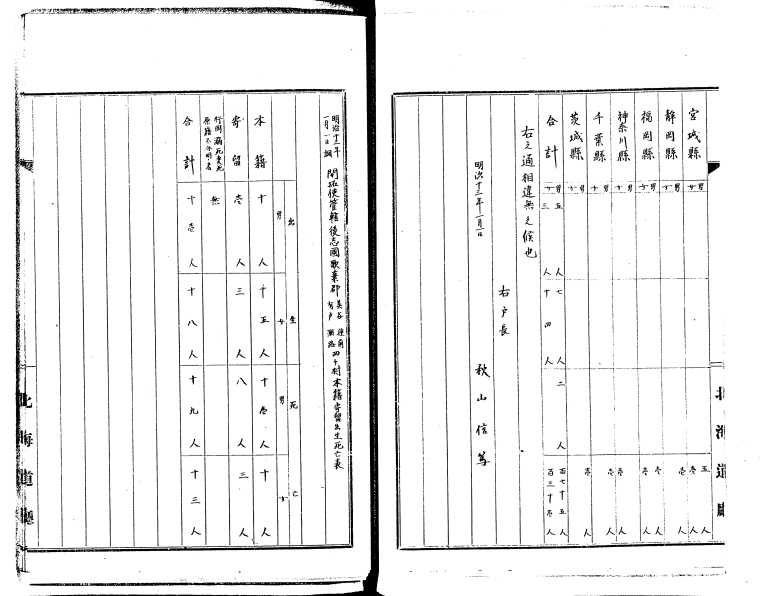 宮城縣 男 女 五人 壱人
靜岡縣 男 女 壱人
福岡縣 男 女 人 人
神奈川縣 男 女 壱人
千葉縣 男 女 人
茨城縣 男 女 壱人
合計 男 五人 七人 二人 百七十五人
女 三人 十四人 百三十壱人
右之通相違無之候也
明治十三年一月一日
右戸長
秋山信篤
北海道廳
明治十三年一月一日調 開拓使管轄後志國歌棄郡美谷有戸種前潮路四ヶ村本籍寄留出生死亡表
出生 死亡
男 女 男 女
本籍 十人 十五人 十壱人 十人
寄留 壱人 三人 八人 三人
原籍不分明者 無
合計 十壱人 十八人 十九人 十三人
北海道廳